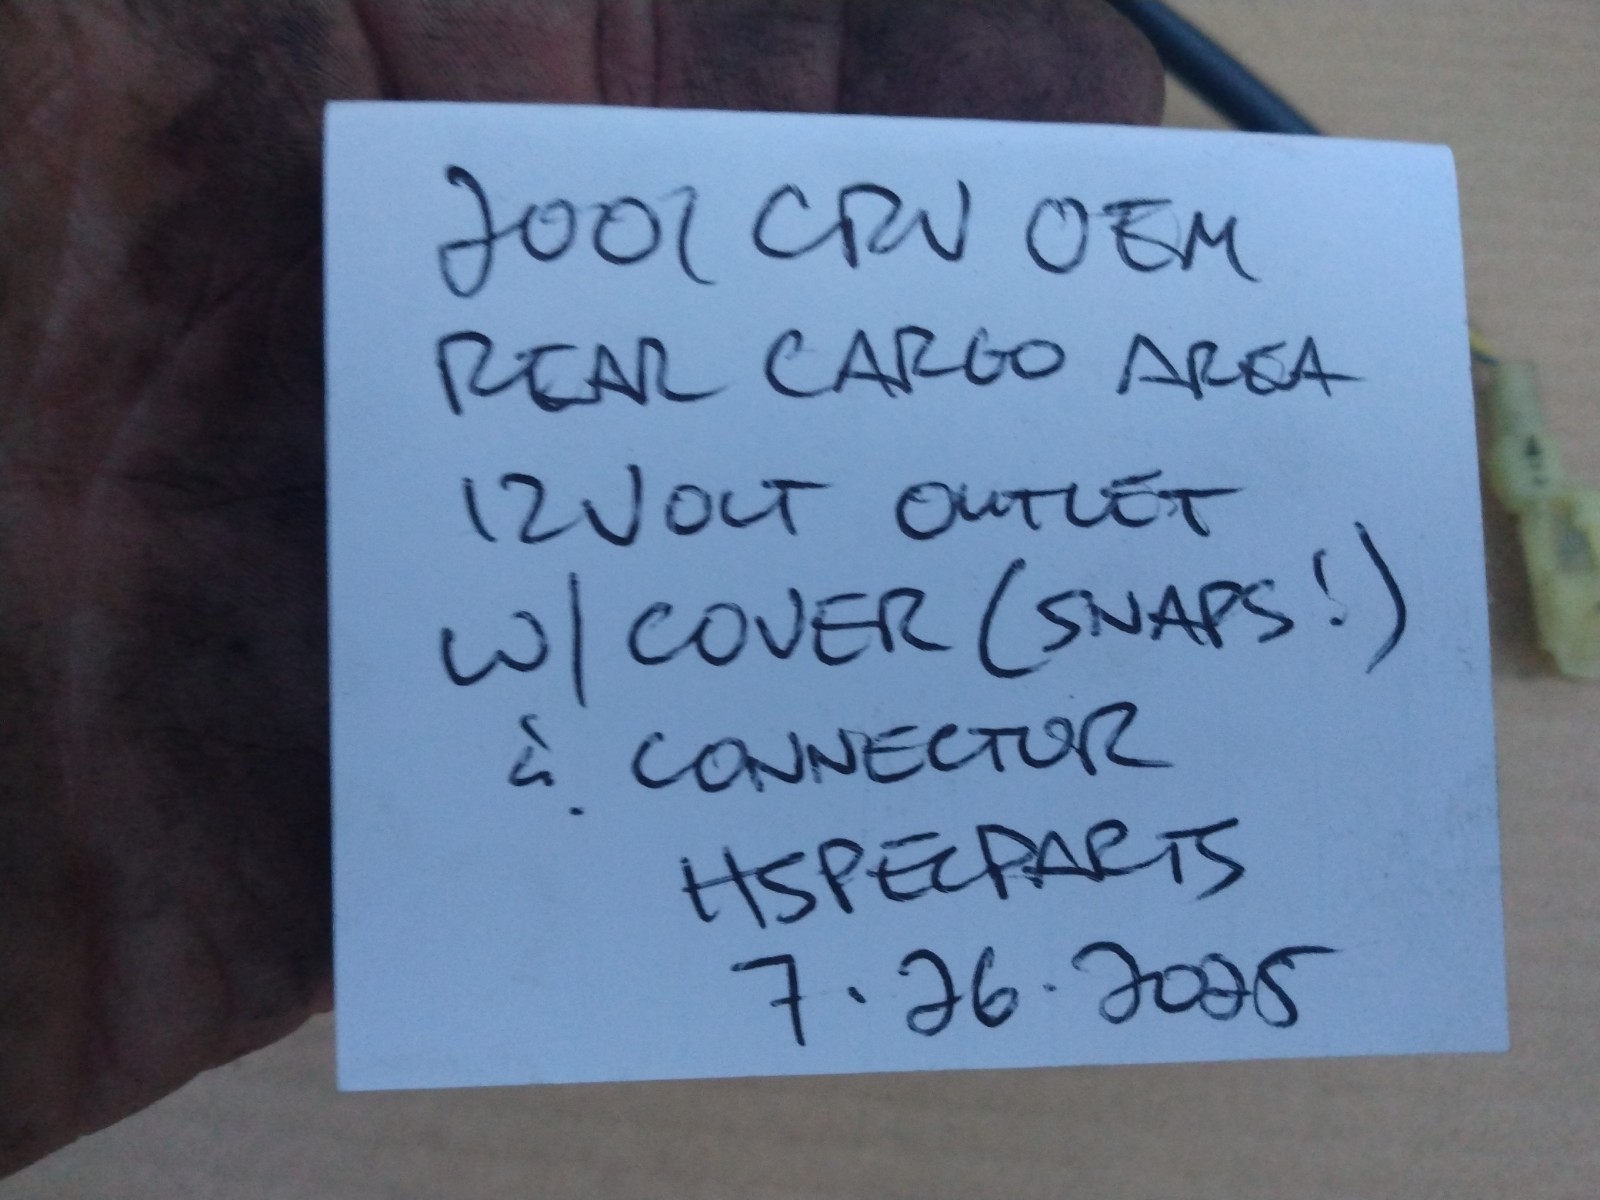 2001 CRV OEM
REAR CARGO AREA
12VOLT OUTLET
W/ COVER (SNAPS!)
& CONNECTOR
HSPECPARTS
7.26.2025